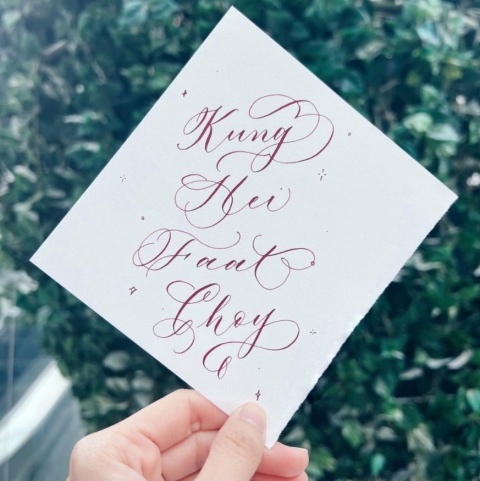 Kung
Hei
Faat
Choy